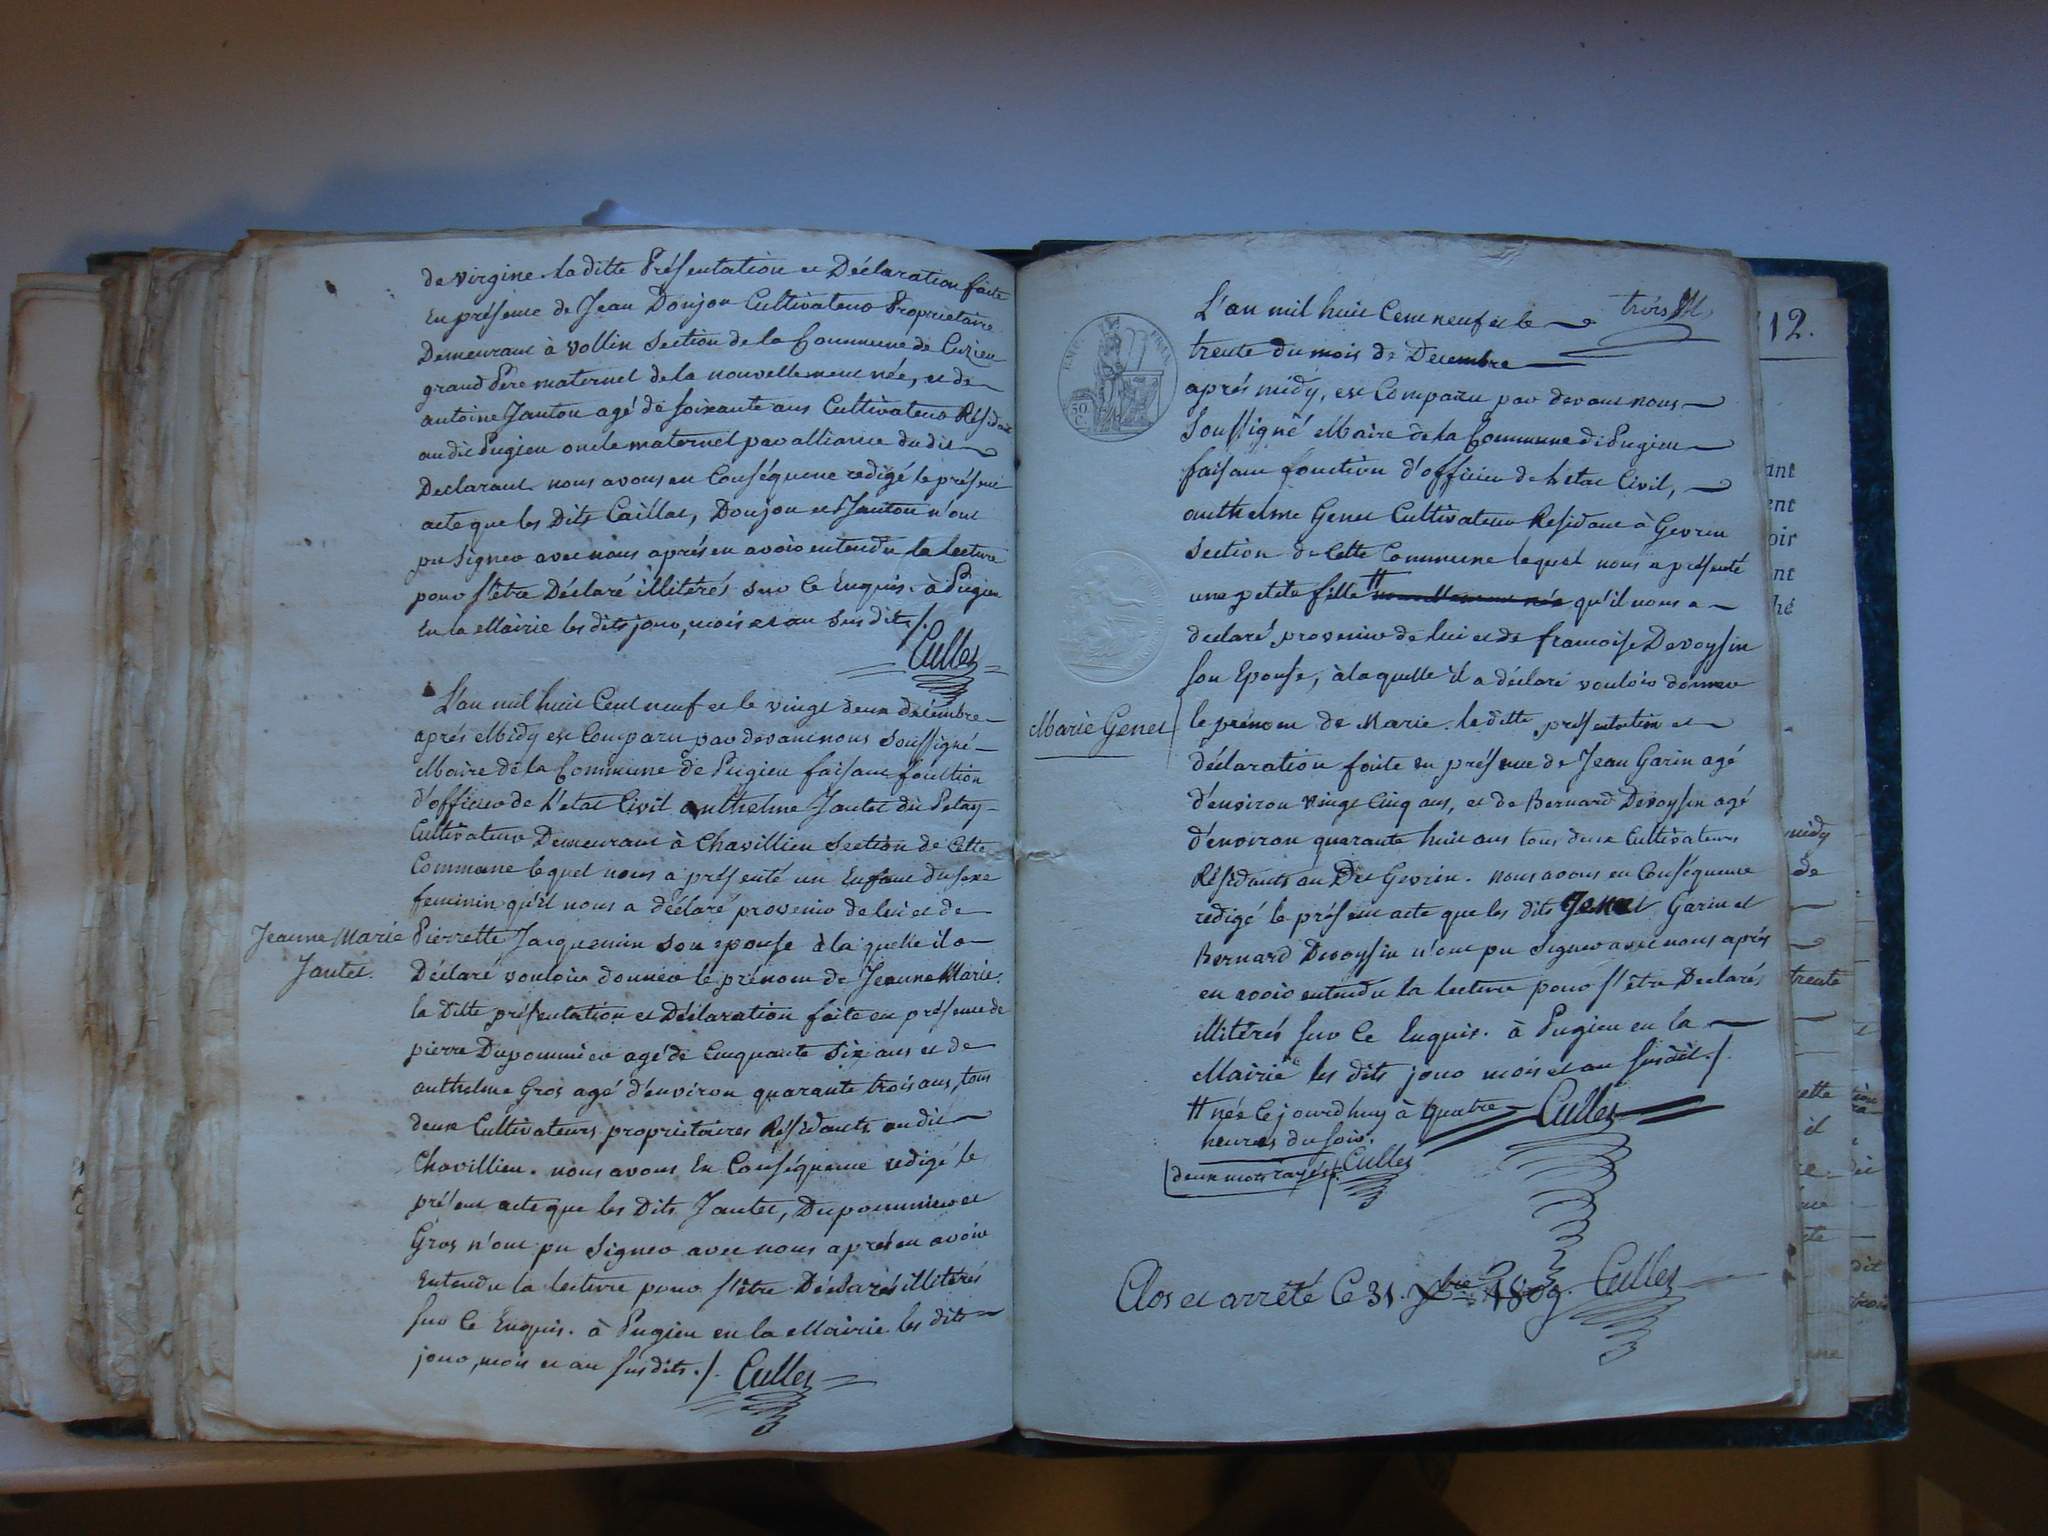 de virgine. la ditte Présentation et Déclaration faite
En présence de Jean Donjon Cultivateur Propriétaire
Demeurant à Vollin Section de la Commune de Cuzieu
grand Père maternel de la nouvellement née, et de
antoine Janton agé de soixante ans Cultivateur Résidant
au dit Pugieu oncle maternel par alliance du dit
Déclarant nous avons en Conséquence redigé le présent
acte que les Dits Caillat, Donjon et Janton n'ont
pu signer avec nous aprés en avoir entendu la lecture
pour s'être Déclaré illitérés sur ce Enquis. à Pugieu
En la Mairie les dits jour, mois et an sus dits /.
Cullet
L'an mil huit Cent neuf et le vingt deux décembre
aprés Midy est Comparu par devant nous soussigné
Maire de la Commune de Pugieu faisant fonction
d'officier de L'etat Civil anthelme Jantet dit Petay
Cultivateur Demeurant à Chavillieu Section de Cette
Commune lequel nous a présenté un Enfant du sexe
feminin qu'il nous a déclaré provenir de lui et de
Jeanne Marie
Jantet.
Pierrette Jacquemin son epouse à la quelle il a
Déclaré vouloir donner le prenom de Jeanne Marie.
la Ditte présentation et Déclaration faite en présence de
pierre Dupommier agé de Cinquante Six ans et de
anthelme Gros agé d'environ quarante trois ans, tous
deux Cultivateurs, proprietaires Résidants au dit
Chavillieu. nous avons En Conséquence redigé le
présent acte que les Dits Jantet, Dupommier et
Gros n'ont pu Signer avec nous aprés en avoir
Entendu la lecture pour s'être Déclarés illitérés
sur Ce Enquis. à Pugieu en la Mairie les dits
jour, mois et an susdits. /. Cullet
trois
L'an mil huit Cent neuf et le
trente du mois de Decembre
aprés midy, est Comparu par devant nous
Soussigné Maire de la Commune de Pugieu
faisant fonction d'officier de l'etat Civil,
anthelme Genet Cultivateur Residant à Gevrin
Section de Cette Commune lequel nous a présenté
une petite fille # nouvellement née qu'il nous a
declaré provenir de lui et de francoise Devoysin
son Epouse, à la quelle il a déclaré vouloir donner
Marie Genet
le prénom de Marie. la ditte présentation et
déclaration faite en présence de Jean Garin agé
d'environ vingt Cinq ans, et de Bernard Devoysin agé
d'environ quarante huit ans tous deux Cultivateurs
Résidants au Dit Gevrin. nous avons en Conséquence
redigé le présent acte que les dits Genet Garin et
Bernard Devoysin n'ont pu signer avec nous aprés
en avoir entendu la lecture pour s'être Declarés
illitérés sur Ce Enquis. à Pugieu en la
Mairie les dits jour mois et an susdit. /.
# née Ce jourdhuy à quatre Cullet
heures du soir.
deux mots rayés /. Cullet
Clos et arrété Ce 31. Xbre 1809. Cullet
12.
trente